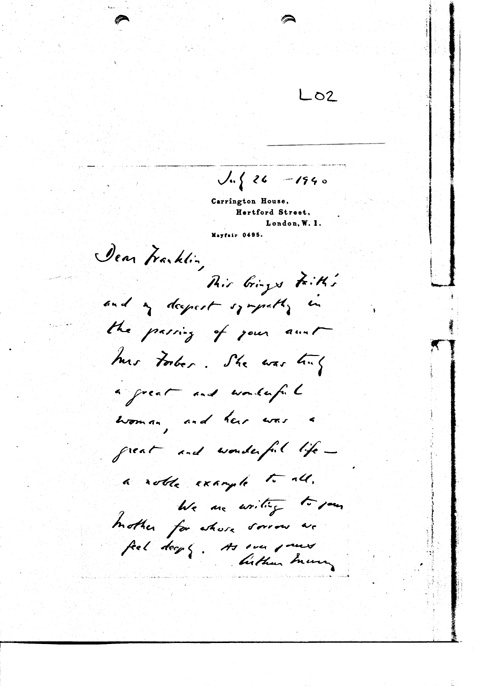 L02
July 26 - 1940
Carrington House,
Hertford Street,
London, W. 1.
Mayfair 0495.
Dear Franklin,
This brings Faith's
and my deepest sympathy in
the passing of your aunt
Mrs Forbes. She was truly
a great and wonderful
woman, and hers was a
great and wonderful life —
a noble example to all.
We are writing to your
Mother for whose sorrow we
feel deeply. As ever yours
Arthur Murray